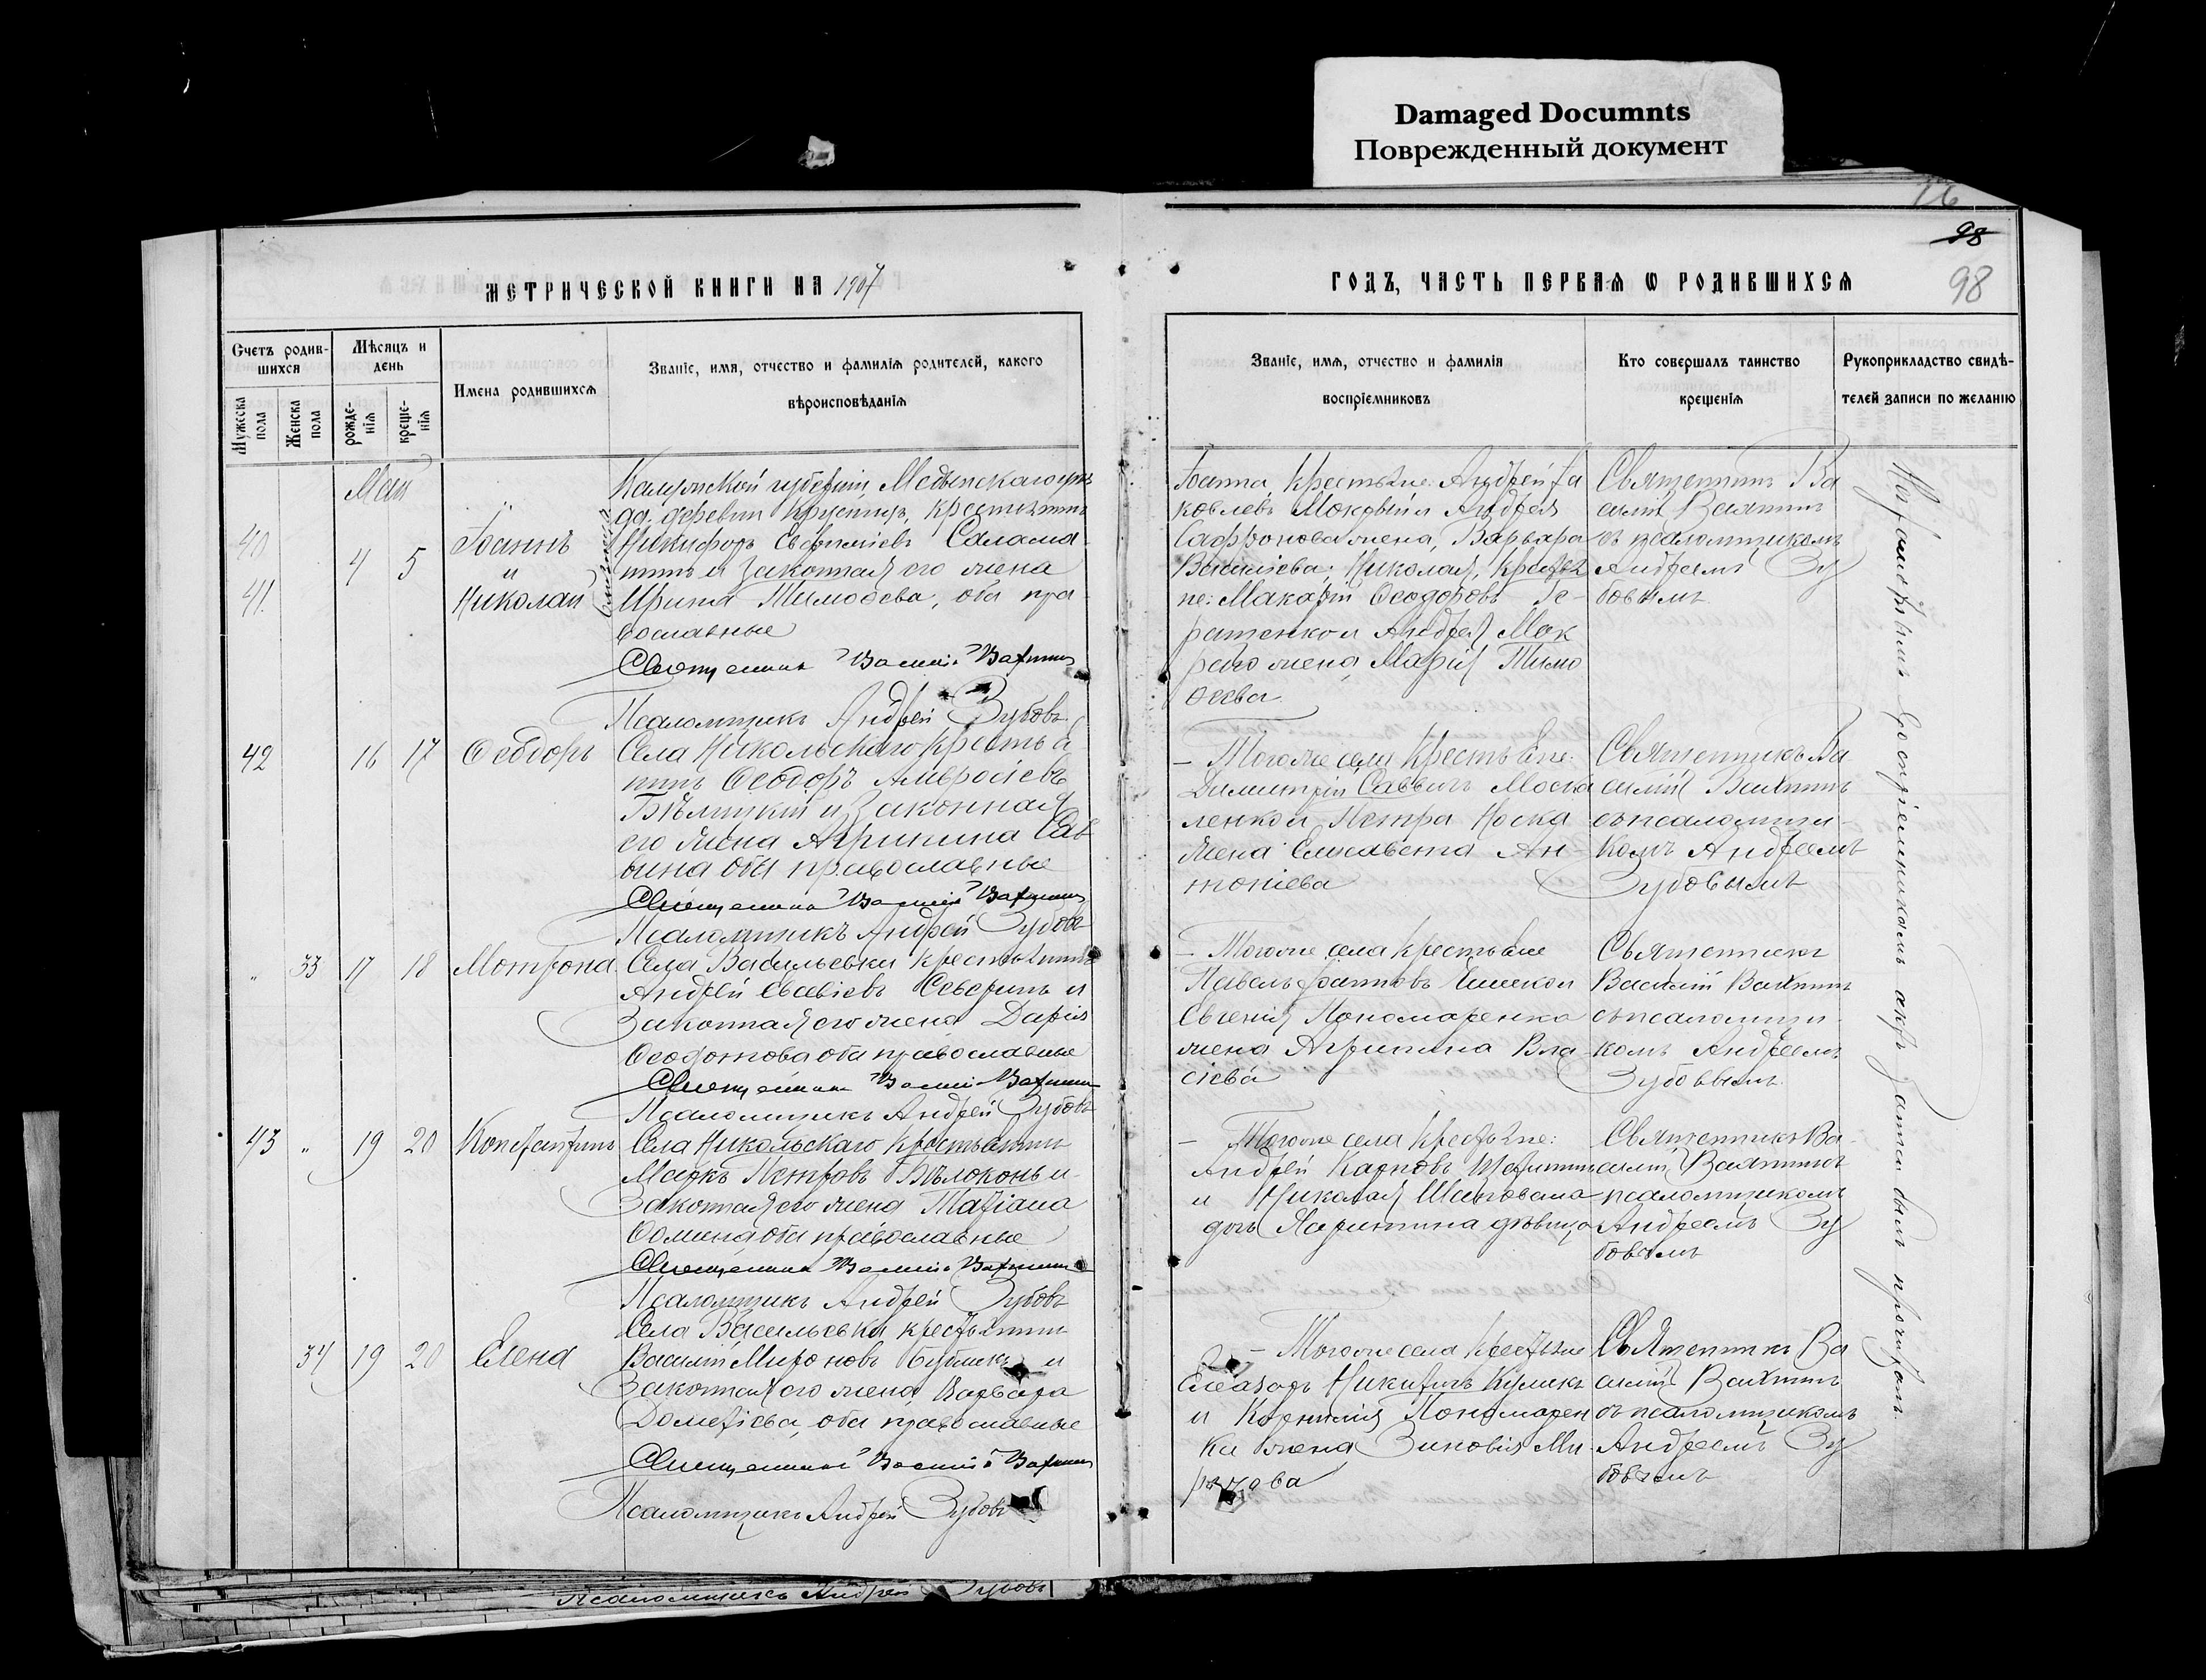 Damaged Documnts
Поврежденный документ
16
98
98
МЕТРИЧЕСКОЙ КНИГИ НА 1907
ГОДЪ, ЧАСТЬ ПЕРВАЯ Ѡ РОДИВШИХСЯ
Счетъ родив-
шихся
Мужеска пола
Женска пола
Мѣсяцъ и
день
рожде-
нія
креще-
нія
Имена родившихся
Званіе, имя, отчество и фамилія родителей, какого
вѣроисповѣданія
Званіе, имя, отчество и фамилія
воспріемниковъ
Кто совершалъ таинство
крещенія
Рукоприкладство свидѣ-
телей записи по желанію
Май
40
41.
4 5
Іоаннъ
и
Николай
Калужской губерніи, Медынскаго уѣз
да. деревни крестьянинъ
Никифоръ
и законная его жена
Ирина Тимоѳева, оба пра-
вославные
Священникъ Василій
Псаломщикъ Андрей Зубовъ
Іоанна, крестьяне: Андрей Іа
ковлевъ и Андрея
Сафронова жена, Варвара
Васильева; Николая, крестья
не: Макарій Ѳеодоровъ Ге-
ращенко и Андрея Мок
раго жена, Марія Тимо
ѳеева
Священникъ Ва
силій
съ псаломщикомъ
Андреемъ Зу
бовымъ
42
16 17
Ѳеодоръ
Села Никольскаго крестья
нинъ Ѳеодоръ Амвросіевъ
Бѣлицкій и законная
его жена Агрипина Сав
вина оба православные
Священникъ Василій
Псаломщикъ Андрей Зубовъ
— Тогоже села крестьяне:
Димитрій Саввичъ Моска
ленко и Петра Носка
жена Елисавета Ан-
тоніева
Священникъ Ва
силій
съ псаломщи-
комъ Андреемъ
Зубовымъ
" 33 17 18
Мотрона
Села Васильевки крестьянинъ
Андрей Евсевіевъ Северинъ и
законная его жена Дарія
Ѳеодотова оба православные
Священникъ Василій
Псаломщикъ Андрей Зубовъ
— Тогоже села крестьяне
Павелъ Іоанновъ и
Евгенія Пономаренко
жена Агрипина Вла
сіева
Священникъ
Василій
съ псаломщи-
комъ Андреемъ
Зубовымъ
43 " 19 20
Константинъ
Села Никольскаго крестьянинъ
Маркъ Петровъ Бѣлоконь и
законная его жена Татіана
Ѳомина, оба православные
Священникъ Василій
Псаломщикъ Андрей Зубовъ
— Тогоже села крестьяне:
Андрей Карповъ
и Николая Шаповала
дочь Харитина дѣвица
Священникъ Ва-
силій
псаломщикомъ
Андреемъ Зу
бовымъ
34 19 20
Елена
Села Васильевки крестьянинъ
Василій Мироновъ Бубликъ и
законная его жена, Варвара
Дометіева, оба православные
Священникъ Василій
Псаломщикъ Андрей Зубовъ
— Тогоже села крестьяне
Елеазаръ Никитичъ Куликъ
и Корнилія Пономарен
ка жена, Зиновія Ми
Священникъ Ва
силій
съ псаломщикомъ
Андреемъ Зу
бовымъ
воспріемникомъ актъ записи былъ прочитанъ.
Псаломщикъ Андрей Зубовъ